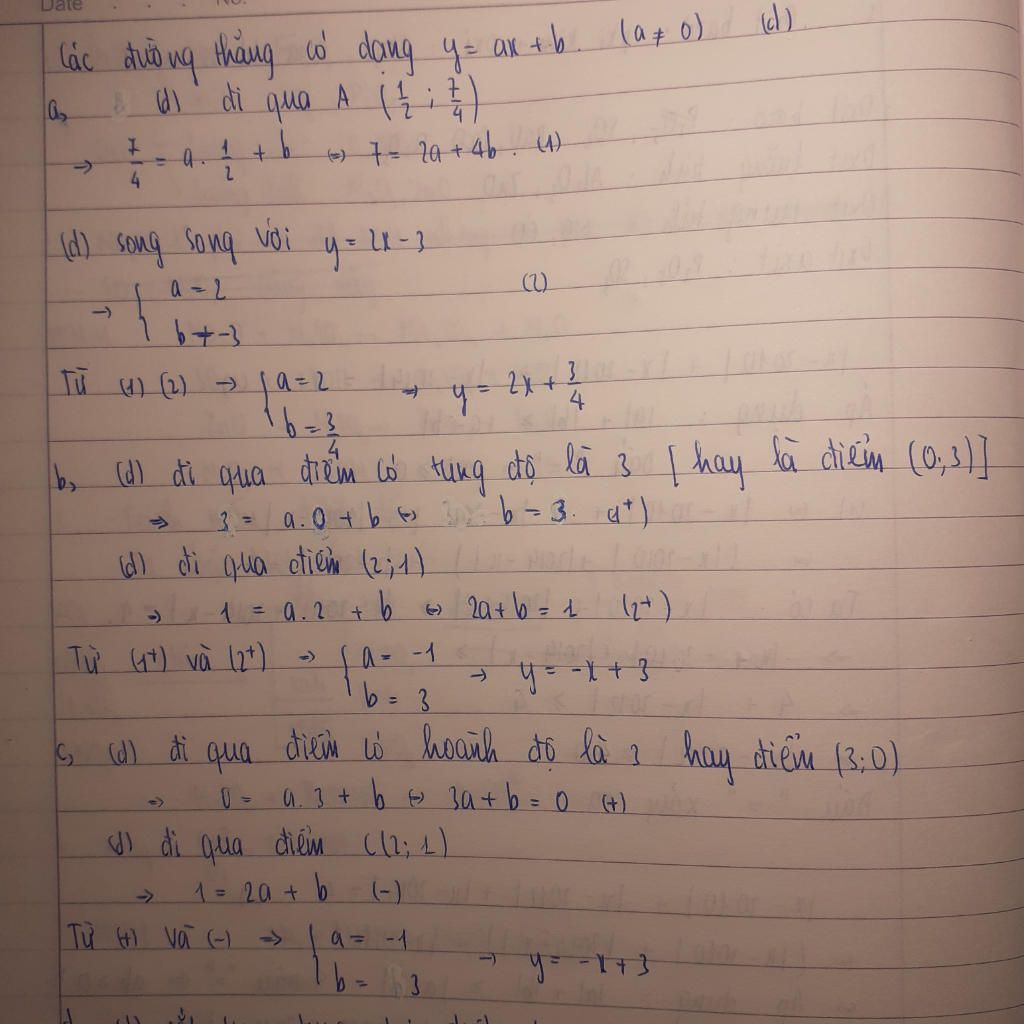 Date . . . No.
Các đường thẳng có dạng y = ax + b. (a ≠ 0) (d)
a, (d) đi qua A (1/2 ; 7/4)
→ 7/4 = a. 1/2 + b ⇔ 7 = 2a + 4b. (1)
(d) song song với y = 2x - 3
→ { a = 2 (2)
b ≠ -3
Từ (1) (2) → { a = 2 → y = 2x + 3/4
b = 3/4
b, (d) đi qua điểm có tung độ là 3 [hay là điểm (0;3)]
⇒ 3 = a.0 + b ⇔ b = 3. (1+)
(d) đi qua điểm (2;1)
⇒ 1 = a.2 + b ⇔ 2a + b = 1 (2+)
Từ (1+) và (2+) ⇒ { a = -1 → y = -x + 3
b = 3
c, (d) đi qua điểm có hoành độ là 3 hay điểm (3;0)
⇒ 0 = a.3 + b ⇔ 3a + b = 0 (+)
(d) đi qua điểm C(2;1)
→ 1 = 2a + b (-)
Từ (+) và (-) ⇒ { a = -1 → y = -x + 3
b = 3